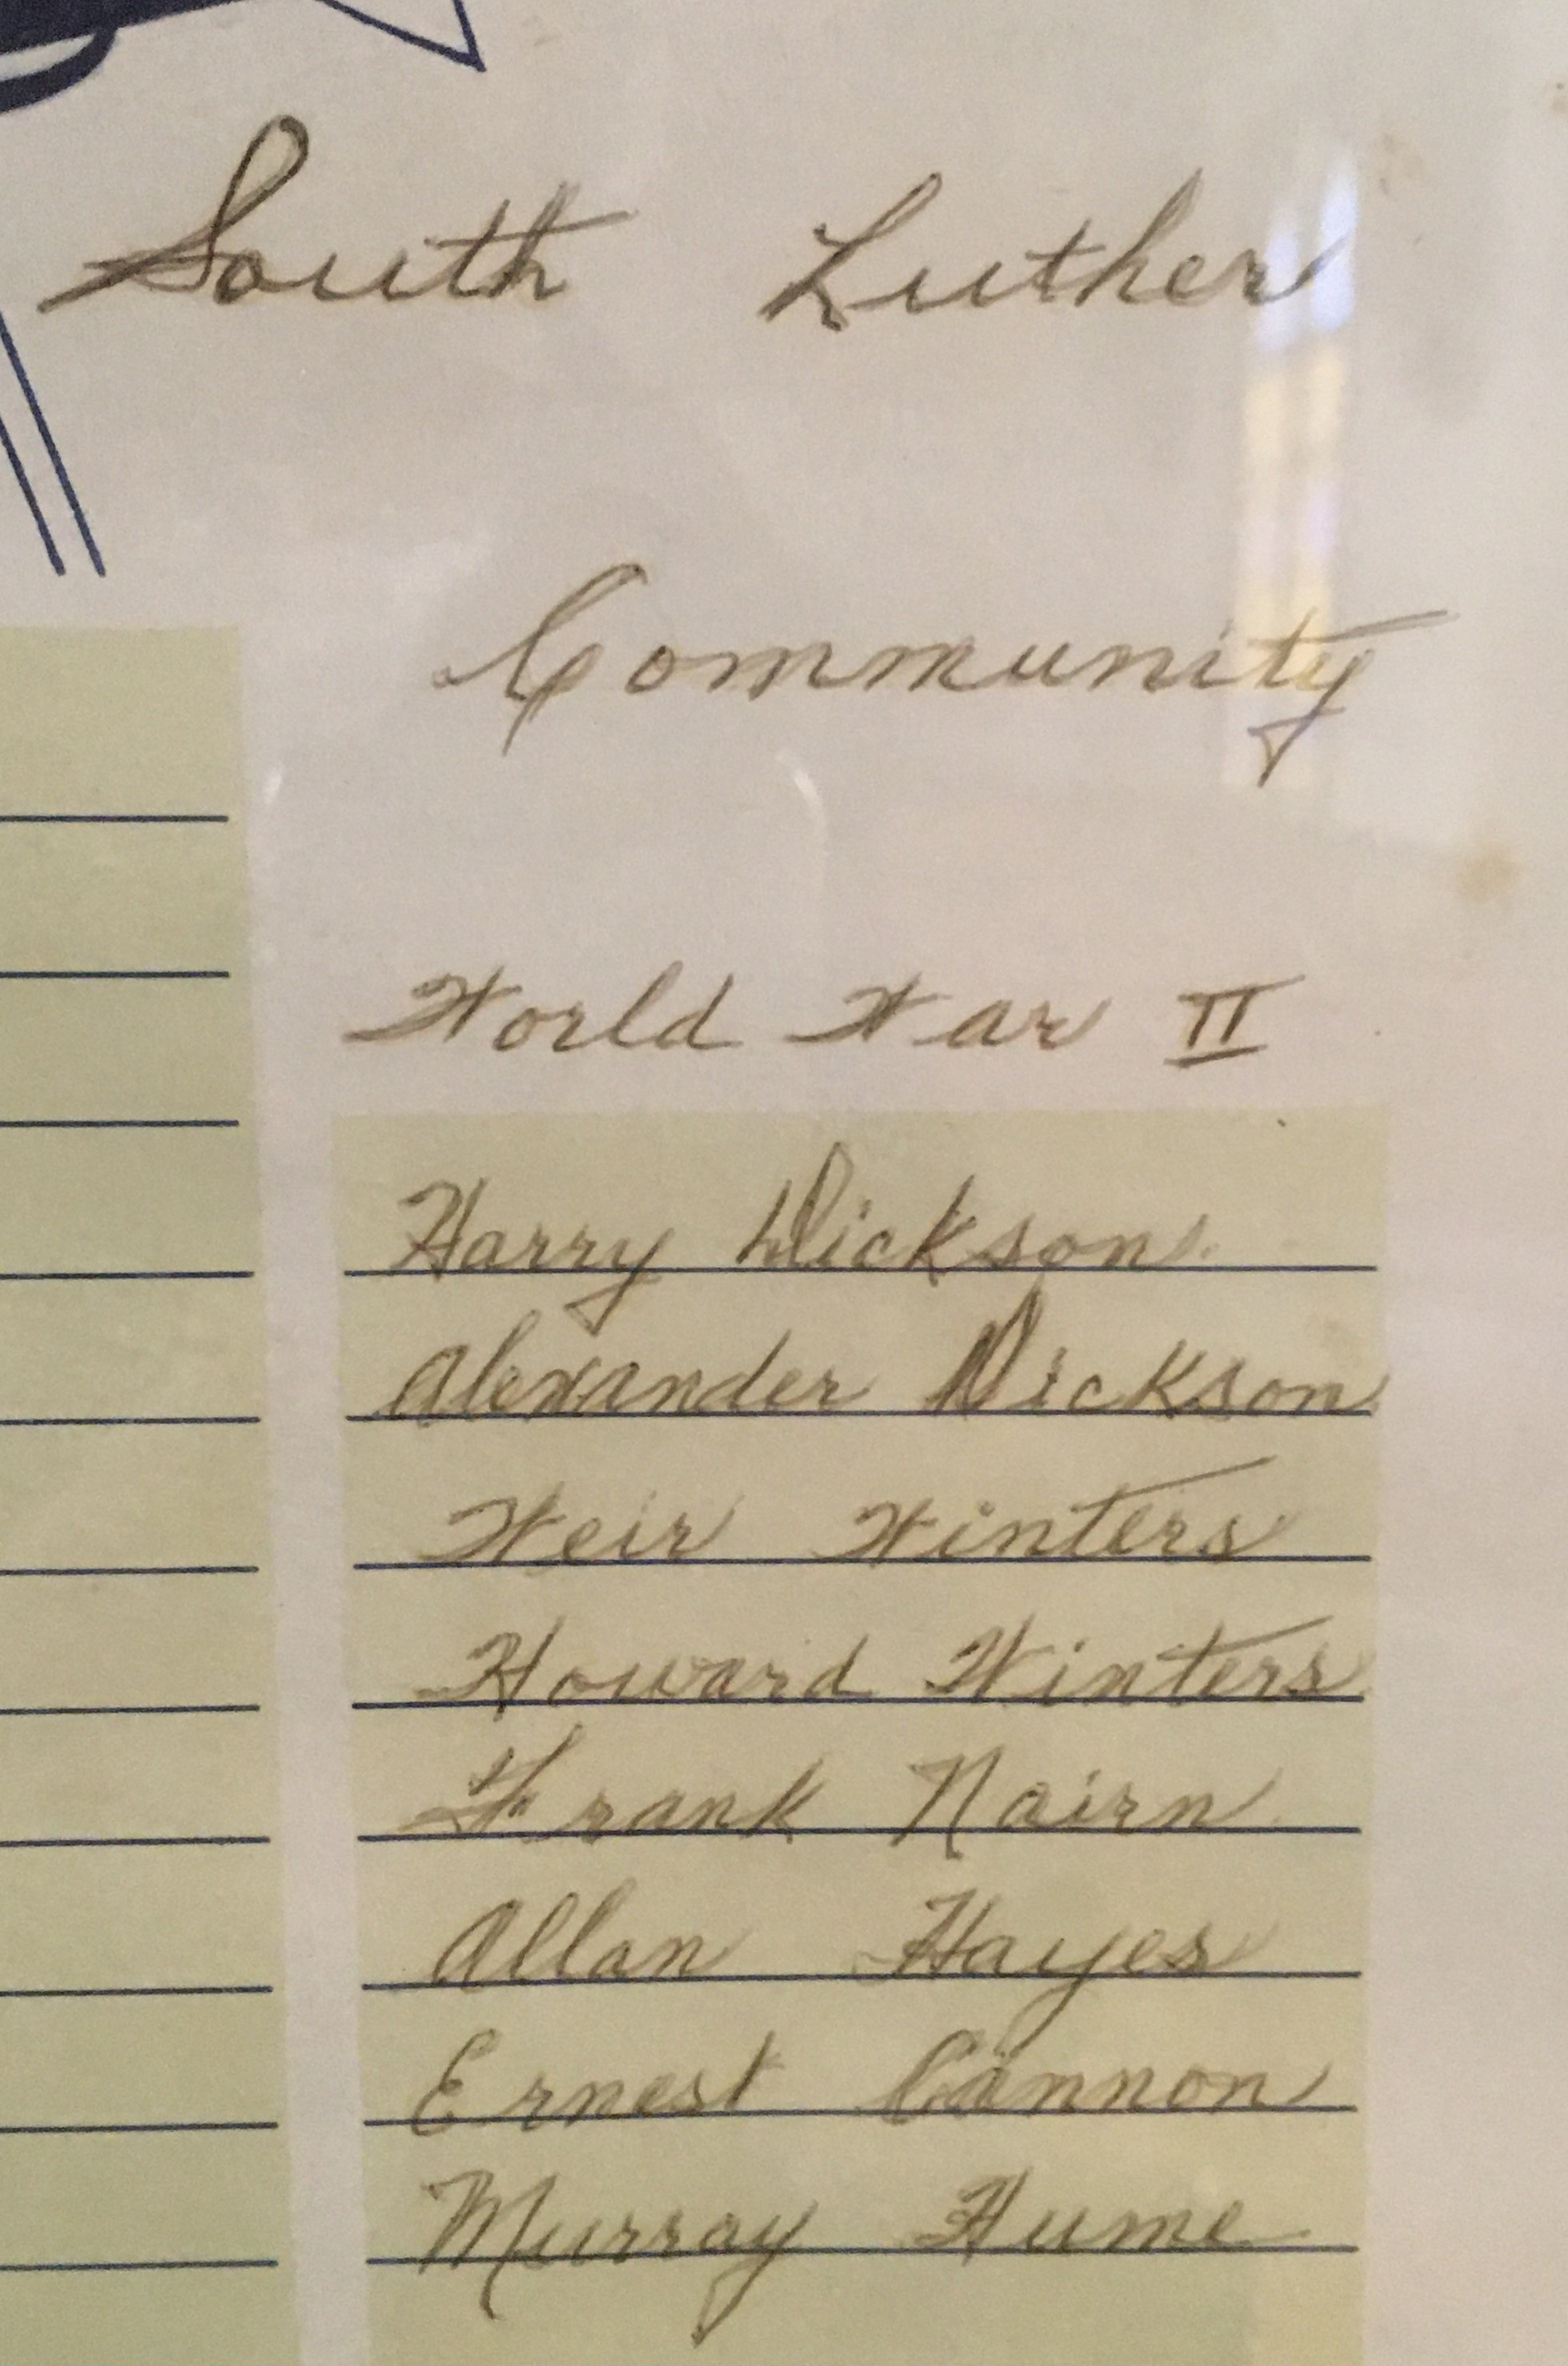 South Luther
Community
World War II
Harry Dickson
Alexander Dickson
Weir Winters
Howard Winters
Frank Nairn
Allan Hayes
Ernest Cannon
Murray Hume